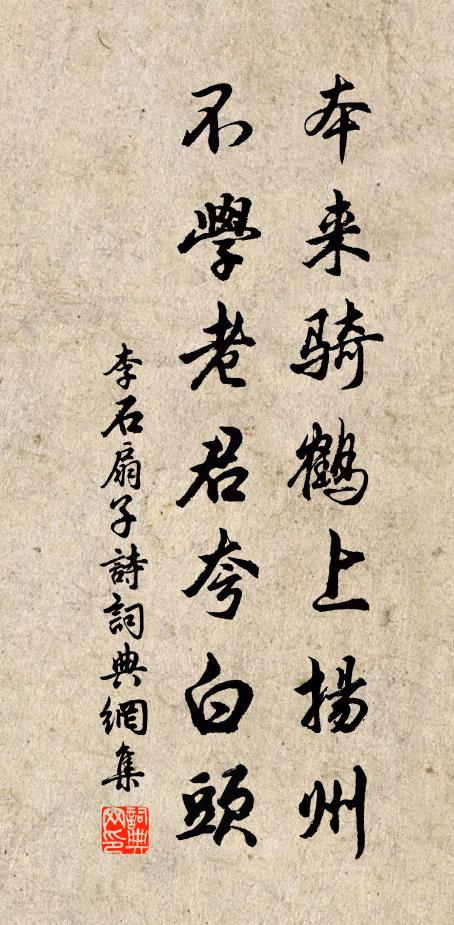 本来骑鹤上揚州
不學老君夸白頭
李石扇子詩詞典網集
詞典网印